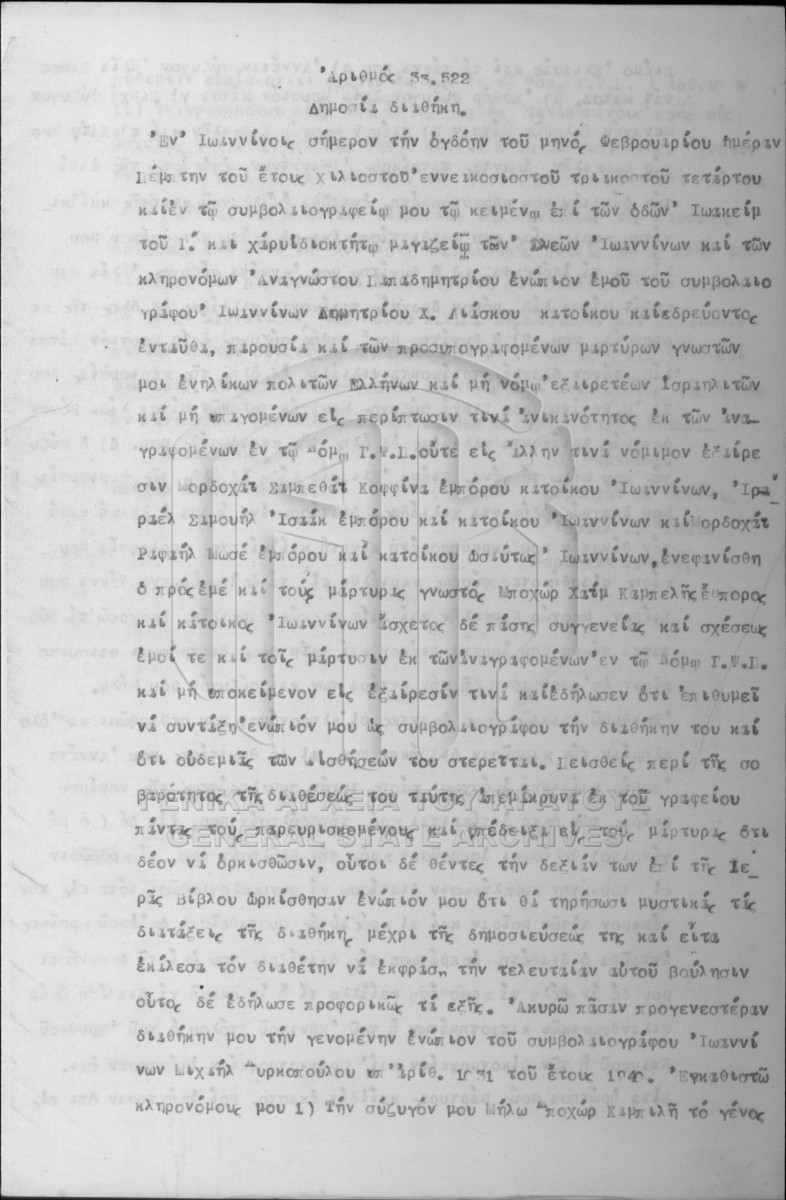 Ἀριθμός 33.522
Δημοσία διαθήκη.
Ἐν Ἰωαννίνοις σήμερον τήν ὀγδόην τοῦ μηνός Φεβρουαρίου ἡμέραν
Πέμπτην τοῦ ἔτους χιλιοστοῦ ἐννεακοσιοστοῦ τριακοστοῦ τετάρτου
καί ἐν τῷ συμβολαιογραφείῳ μου τῷ κειμένῳ ἐπί τῶν ὁδῶν Ἰωακείμ
τοῦ Γ. καί ἰδιοκτήτῳ μαγαζείῳ τῶν Ἐλεῶν Ἰωαννίνων καί τῶν
κληρονόμων Ἀναγνώστου Παπαδημητρίου ἐνώπιον ἐμοῦ τοῦ συμβολαιο
γράφου Ἰωαννίνων Δημητρίου Χ. Λιάσκου κατοίκου καί ἑδρεύοντος
ἐνταῦθα, παρουσίᾳ καί τῶν προσυπογραφομένων μαρτύρων γνωστῶν
μοι ἐνηλίκων πολιτῶν Ἑλλήνων καί μή νόμῳ ἐξαιρετέων Ἰσραηλιτῶν
καί μή ὑπαγομένων εἰς περίπτωσιν τινά ἀνικανότητος ἐκ τῶν ἀνα-
γραφομένων ἐν τῷ Νόμῳ Γ.Ψ.Ι. οὔτε εἰς ἄλλην τινά νόμιμον ἐξαίρε
σιν Μορδοχάϊ Σαμπεθάϊ Κοφφίνα ἐμπόρου κατοίκου Ἰωαννίνων, Ἰσ
ραέλ Σαμουήλ Ἰσαάκ ἐμπόρου καί κατοίκου Ἰωαννίνων καί Μορδοχάϊ
Ραφαήλ Μωσέ ἐμπόρου καί κατοίκου ὡσαύτως Ἰωαννίνων, ἐνεφανίσθη
ὁ πρός ἐμέ καί τούς μάρτυρας γνωστός Μποχώρ Χαΐμ Καμπελῆς ἔμπορος
καί κάτοικος Ἰωαννίνων ἄσχετος δέ πάσης συγγενείας καί σχέσεως
ἐμοί τε καί τοῖς μάρτυσιν ἐκ τῶν ἀναγραφομένων ἐν τῷ Νόμῳ Γ.Ψ.Ι.
καί μή ὑποκείμενον εἰς ἐξαίρεσίν τινά καί ἐδήλωσεν ὅτι ἐπιθυμεῖ
νά συντάξῃ ἐνώπιόν μου ὡς συμβολαιογράφου τήν διαθήκην του καί
ὅτι οὐδεμιᾶς τῶν αἰσθήσεών του στερεῖται. Πεισθείς περί τῆς σο
βαρότητος τῆς διαθέσεώς του ταύτης ἀπεμάκρυνα ἐκ τοῦ γραφείου
πάντας τούς παρευρισκομένους καί ὑπέδειξα εἰς τούς μάρτυρας ὅτι
δέον νά ὁρκισθῶσιν, οὗτοι δέ θέντες τήν δεξιάν των ἐπί τῆς Ἱε-
ρᾶς Βίβλου ὡρκίσθησαν ἐνώπιόν μου ὅτι θά τηρήσωσι μυστικάς τάς
διατάξεις τῆς διαθήκης μέχρι τῆς δημοσιεύσεώς της καί εἶτα
ἐκάλεσα τόν διαθέτην νά ἐκφράσῃ τήν τελευταίαν αὐτοῦ βούλησιν
οὗτος δέ ἐδήλωσε προφορικῶς τά ἑξῆς. Ἀκυρῶ πᾶσαν προγενεστέραν
διαθήκην μου τήν γενομένην ἐνώπιον τοῦ συμβολαιογράφου Ἰωαννί
νων Μιχαήλ ὑπ' ἀριθ. τοῦ ἔτους Ἐγκαθιστῶ
κληρονόμους μου 1) Τήν σύζυγόν μου Μήλω Μποχώρ Καμπελῆ τό γένος
ΓΕΝΙΚΑ ΑΡΧΕΙΑ ΤΟΥ ΚΡΑΤΟΥΣ
GENERAL STATE ARCHIVES